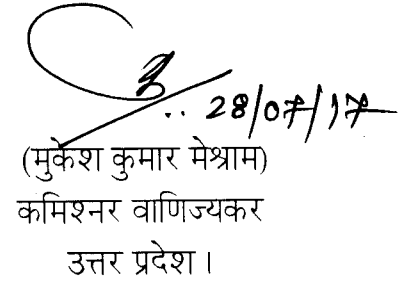 28/07/17
(मुकेश कुमार मेश्राम)
कमिश्नर वाणिज्यकर
उत्तर प्रदेश।